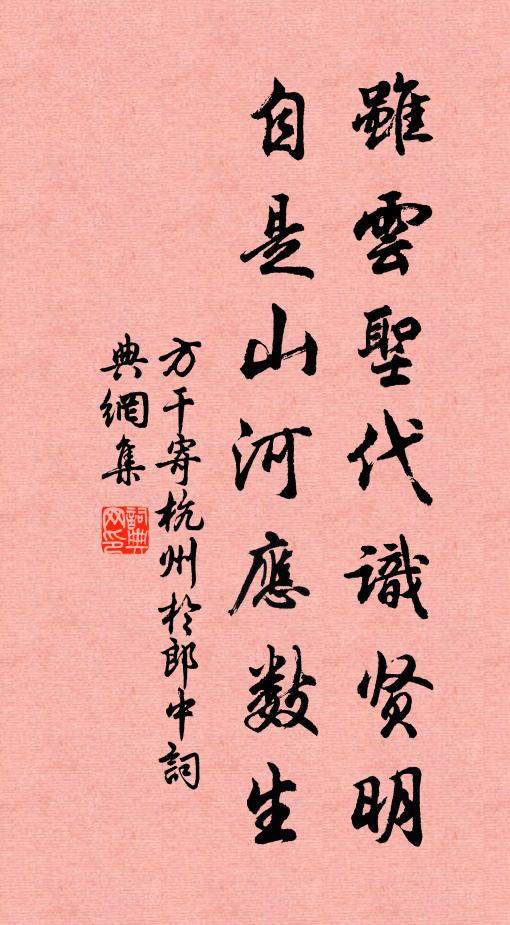 雖雲聖代識贤明
自是山河應数生
方干寄杭州於郎中詞
典網集
詞典网印